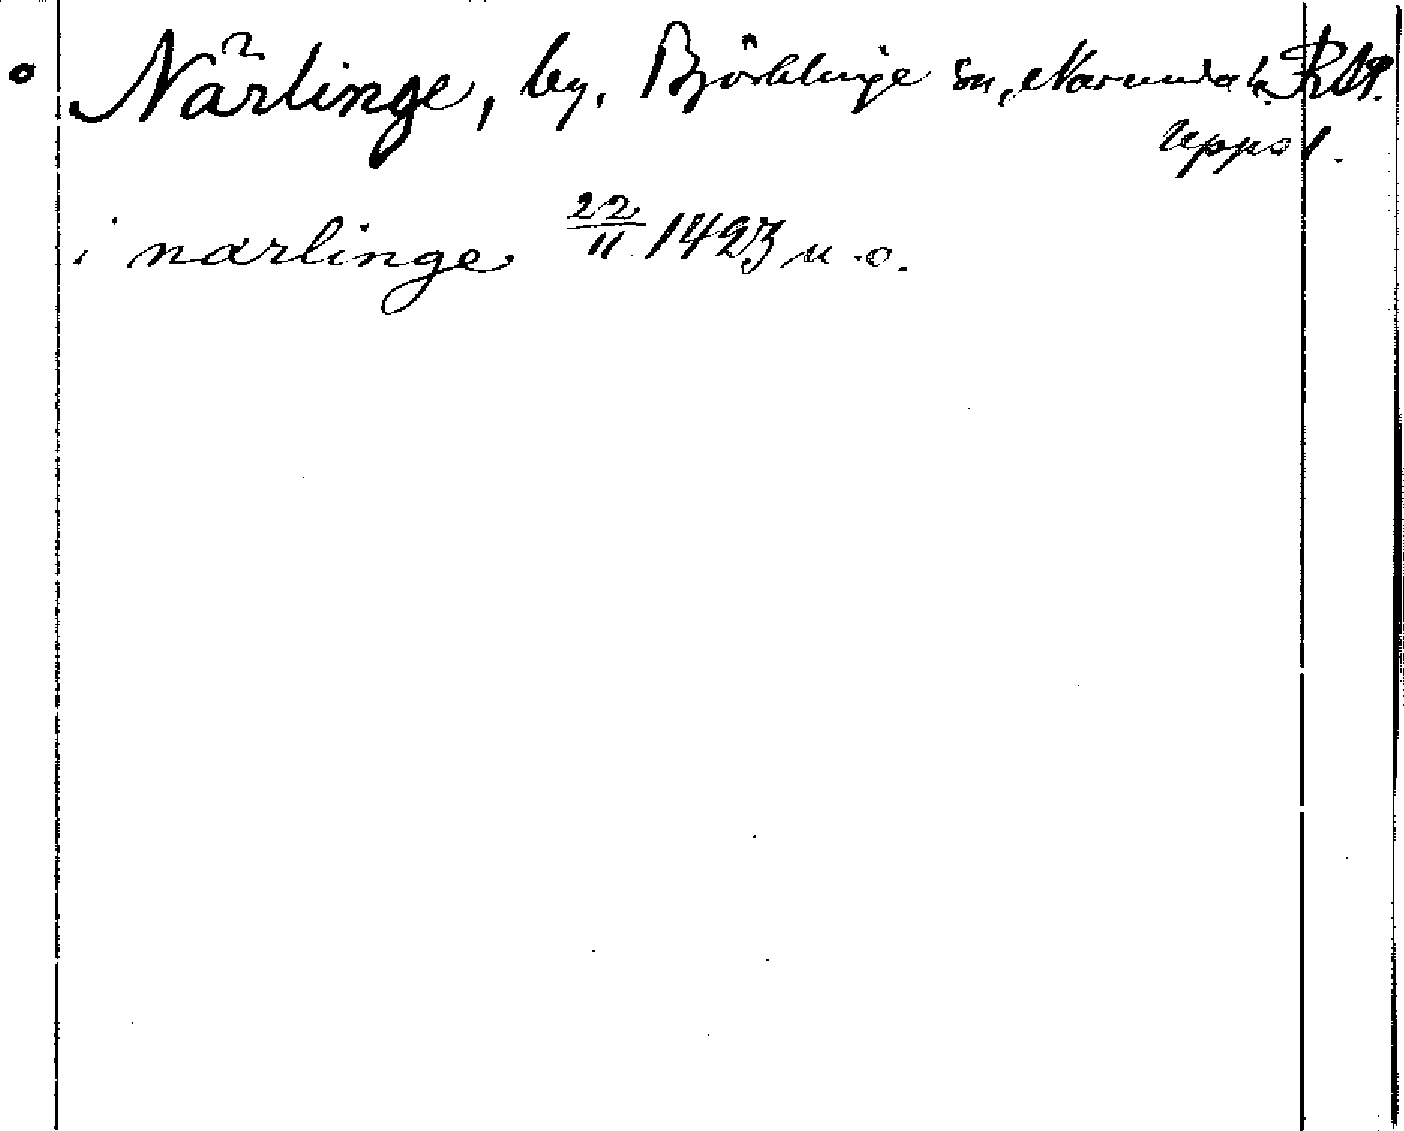 Närlinge, by, Björklinge sn, Norunda h. RAp.
Upps l.
i narlinge 22/11 1423 u.o.